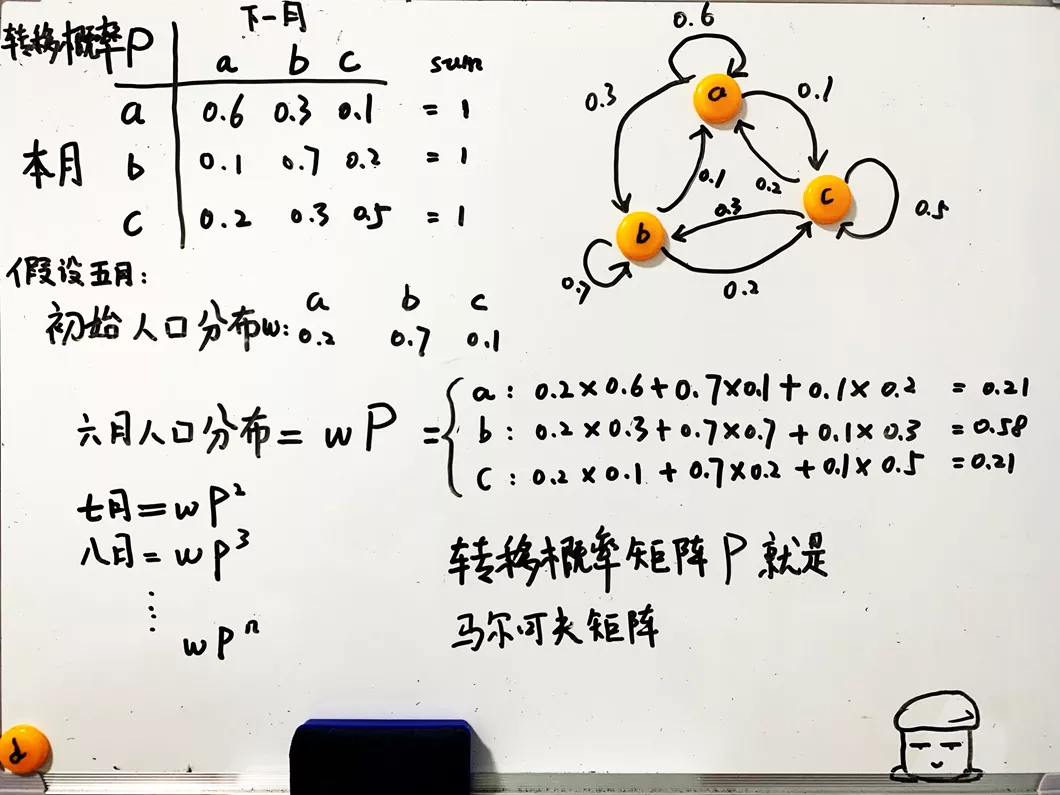 转移概率P 下一月
a b c sum
a 0.6 0.3 0.1 = 1
本月 b 0.1 0.7 0.2 = 1
c 0.2 0.3 0.5 = 1
0.6
a
0.3
0.1
0.1
0.2
c
0.5
0.3
b
0.7
0.2
假设五月:
a b c
初始人口分布w: 0.2 0.7 0.1
六月人口分布 = wP =
a : 0.2×0.6+0.7×0.1+0.1×0.2 = 0.21
b : 0.2×0.3+0.7×0.7+0.1×0.3 = 0.58
c : 0.2×0.1+0.7×0.2+0.1×0.5 = 0.21
七月=wP²
八月=wP³
⋮
wPⁿ
转移概率矩阵P就是
马尔可夫矩阵
d